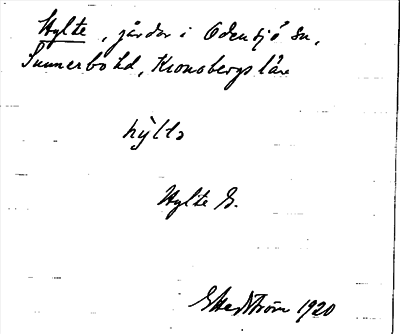 Hylte, gårdar i Odensjö sn,
Sunnerbo hd, Kronobergs län
hỳltə
Hylte G.
E Hedström 1920